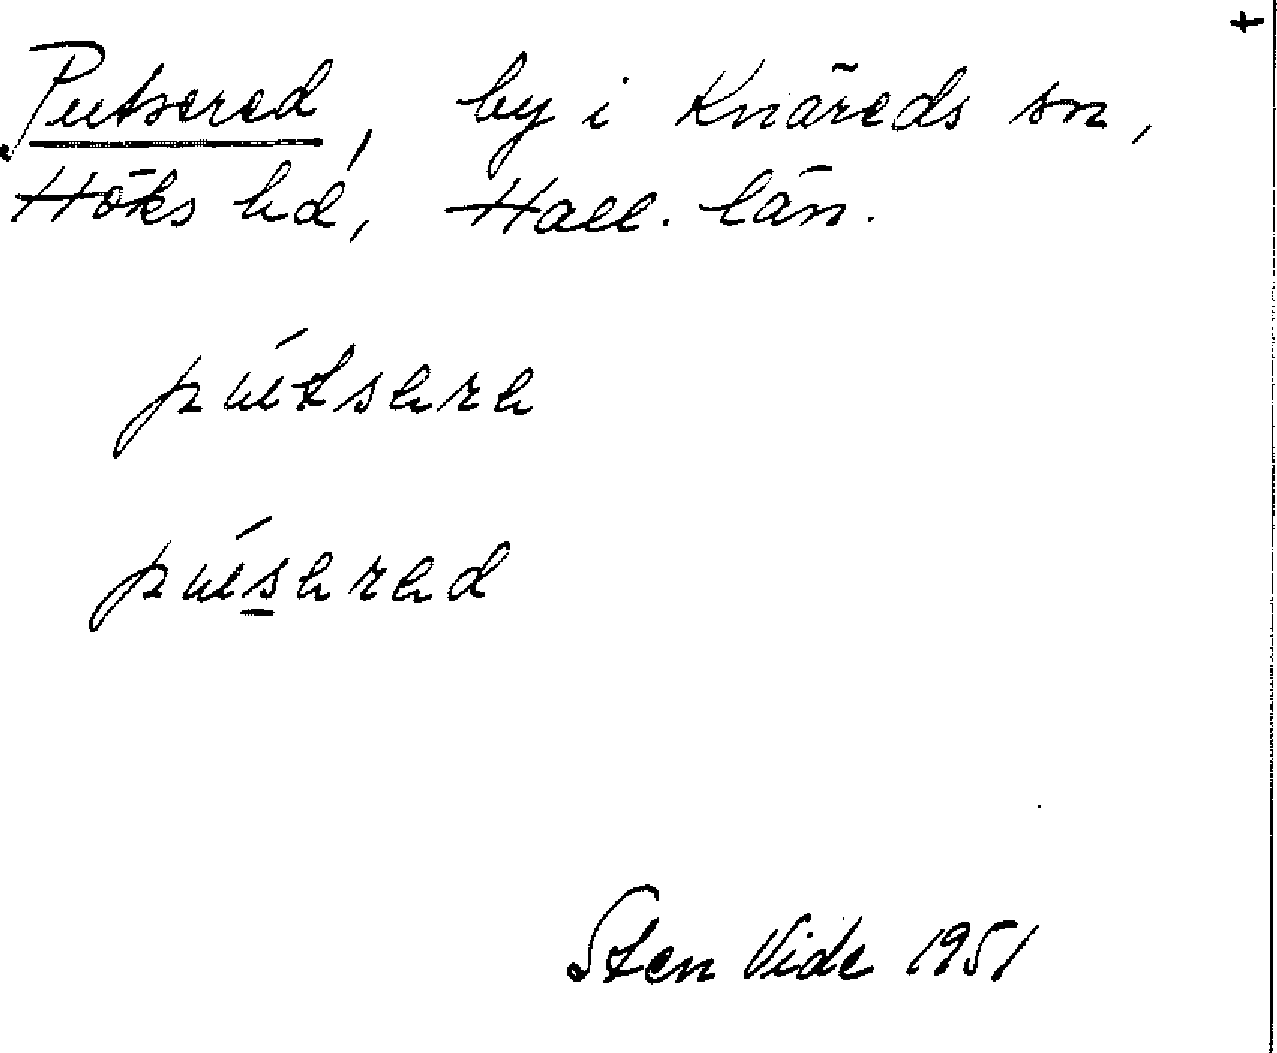 Putsered, by i Knäreds sn,
Höks hd, Hall. län.
pútsara
púsarad
Sten Vide 1951